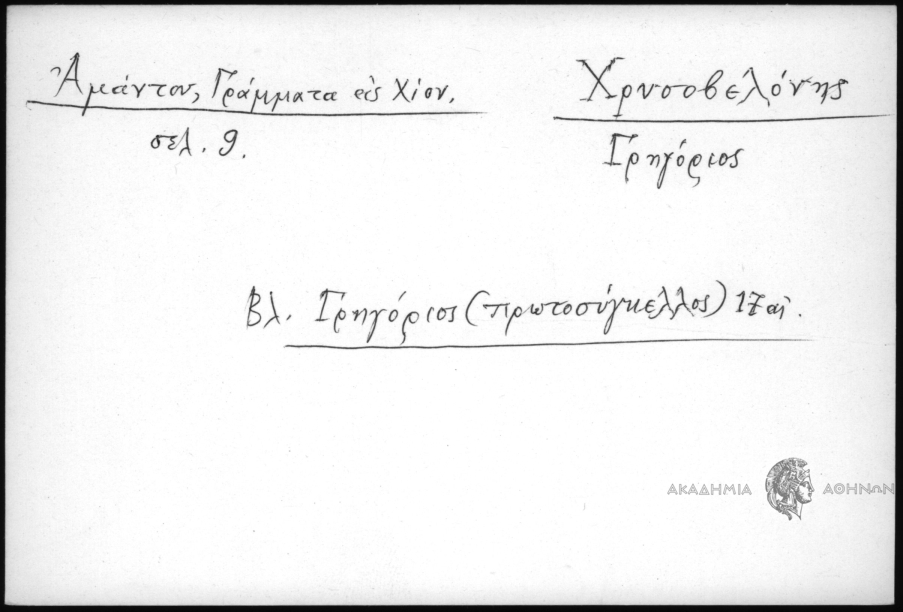 Ἀμάντου, Γράμματα εἰς Χίον.
σελ. 9.
Χρυσοβελόνης
Γρηγόριος
Βλ. Γρηγόριος (πρωτοσύγκελλος) 17 αἰ.
ΑΚΑΔΗΜΙΑ ΑΘΗΝΩΝ